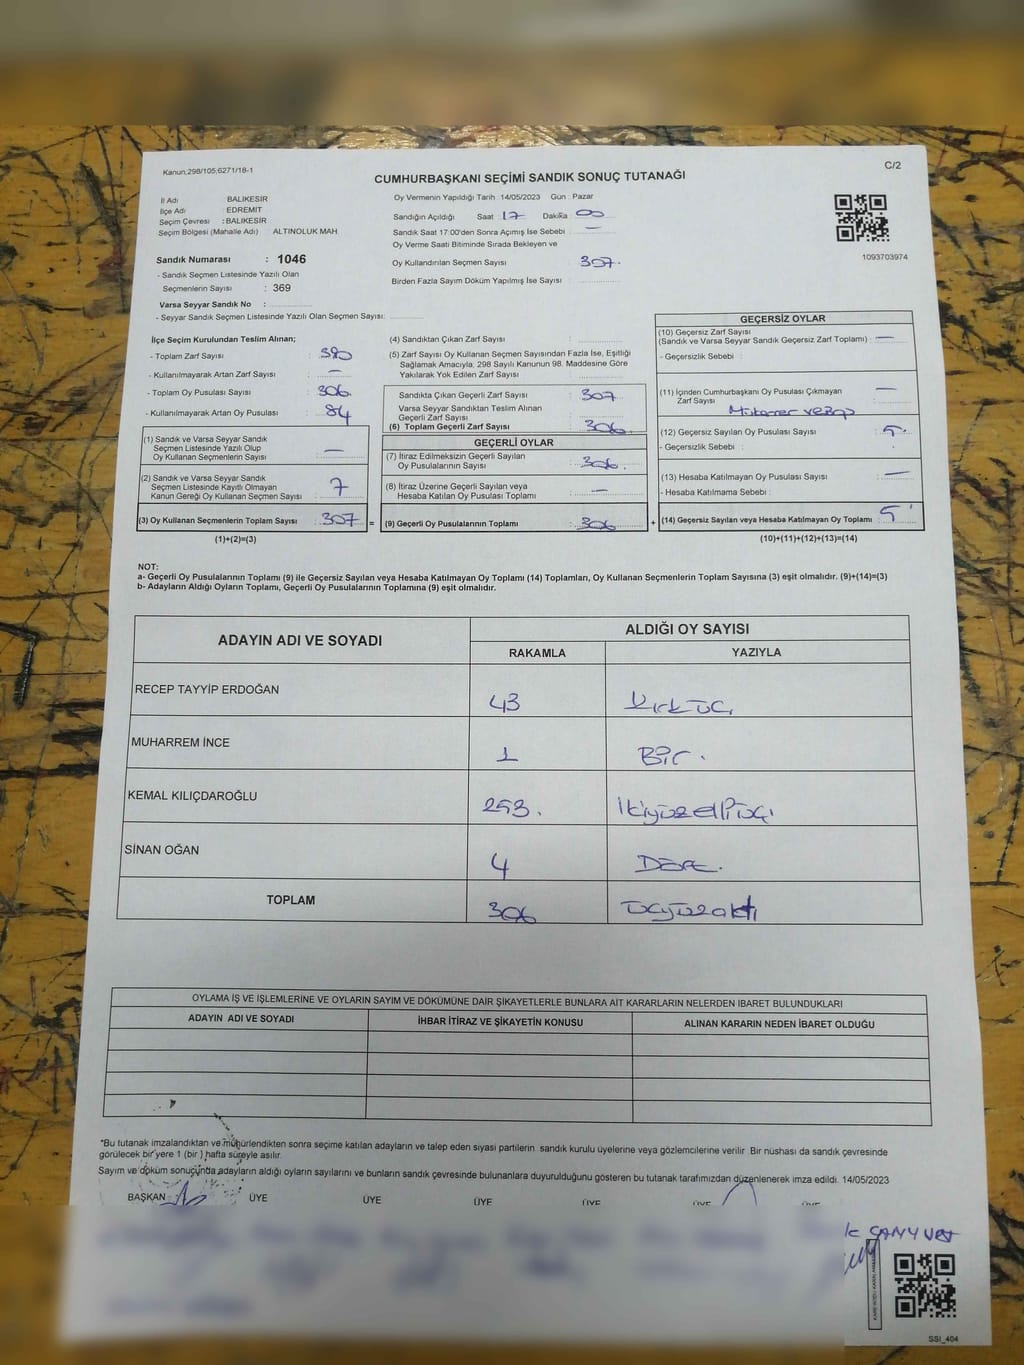 Kanun,298/105;6271/18-1
C/2
CUMHURBAŞKANI SEÇİMİ SANDIK SONUÇ TUTANAĞI
İl Adı BALIKESİR
İlçe Adı : EDREMIT
Seçim Çevresi : BALIKESİR
Seçim Bölgesi (Mahalle Adı) : ALTINOLUK MAH.
Sandık Numarası : 1046
- Sandık Seçmen Listesinde Yazılı Olan
Seçmenlerin Sayısı : 369
Varsa Seyyar Sandık No :
- Seyyar Sandık Seçmen Listesinde Yazılı Olan Seçmen Sayısı:
Oy Vermenin Yapıldığı Tarih : 14/05/2023 Gün : Pazar
Sandığın Açıldığı Saat : 17 Dakika : 00
Sandık Saat 17:00'den Sonra Açımış İse Sebebi : —
Oy Verme Saati Bitiminde Sırada Bekleyen ve
Oy Kullandırılan Seçmen Sayısı : 307.
Birden Fazla Sayım Döküm Yapılmış İse Sayısı :
1093703974
İlçe Seçim Kurulundan Teslim Alınan;
- Toplam Zarf Sayısı : 390
- Kullanılmayarak Artan Zarf Sayısı : —
- Toplam Oy Pusulası Sayısı : 306
- Kullanılmayarak Artan Oy Pusulası : 84
(1) Sandık ve Varsa Seyyar Sandık
Seçmen Listesinde Yazılı Olup
Oy Kullanan Seçmenlerin Sayısı : —
(2) Sandık ve Varsa Seyyar Sandık
Seçmen Listesinde Kayıtlı Olmayan
Kanun Gereği Oy Kullanan Seçmen Sayısı : 7
(3) Oy Kullanan Seçmenlerin Toplam Sayısı : 307 =
(1)+(2)=(3)
(4) Sandıktan Çıkan Zarf Sayısı :
(5) Zarf Sayısı Oy Kullanan Seçmen Sayısından Fazla İse, Eşitliği
Sağlamak Amacıyla; 298 Sayılı Kanunun 98. Maddesine Göre
Yakılarak Yok Edilen Zarf Sayısı :
Sandıkta Çıkan Geçerli Zarf Sayısı : 307
Varsa Seyyar Sandıktan Teslim Alınan
Geçerli Zarf Sayısı :
(6) Toplam Geçerli Zarf Sayısı : 306
GEÇERLİ OYLAR
(7) İtiraz Edilmeksizin Geçerli Sayılan
Oy Pusulalarının Sayısı : 306.
(8) İtiraz Üzerine Geçerli Sayılan veya
Hesaba Katılan Oy Pusulası Toplamı : —
(9) Geçerli Oy Pusulalarının Toplamı : 306 +
GEÇERSİZ OYLAR
(10) Geçersiz Zarf Sayısı
(Sandık ve Varsa Seyyar Sandık Geçersiz Zarf Toplamı) : —
- Geçersizlik Sebebi :
(11) İçinden Cumhurbaşkanı Oy Pusulası Çıkmayan
Zarf Sayısı : —
(12) Geçersiz Sayılan Oy Pusulası Sayısı : 5.
- Geçersizlik Sebebi :
(13) Hesaba Katılmayan Oy Pusulası Sayısı : —
- Hesaba Katılmama Sebebi :
(14) Geçersiz Sayılan veya Hesaba Katılmayan Oy Toplamı : 5
(10)+(11)+(12)+(13)=(14)
NOT:
a- Geçerli Oy Pusulalarının Toplamı (9) ile Geçersiz Sayılan veya Hesaba Katılmayan Oy Toplamı (14) Toplamları, Oy Kullanan Seçmenlerin Toplam Sayısına (3) eşit olmalıdır. (9)+(14)=(3)
b- Adayların Aldığı Oyların Toplamı, Geçerli Oy Pusulalarının Toplamına (9) eşit olmalıdır.
ADAYIN ADI VE SOYADI ALDIĞI OY SAYISI
RAKAMLA YAZIYLA
RECEP TAYYİP ERDOĞAN 43 Kırküç
MUHARREM İNCE 1 Bir.
KEMAL KILIÇDAROĞLU 253. İkiyüzelliüç
SİNAN OĞAN 4 Dört.
TOPLAM 306 üçyüzaltı
OYLAMA İŞ VE İŞLEMLERİNE VE OYLARIN SAYIM VE DÖKÜMÜNE DAİR ŞİKAYETLERLE BUNLARA AİT KARARLARIN NELERDEN İBARET BULUNDUKLARI
ADAYIN ADI VE SOYADI İHBAR İTİRAZ VE ŞİKAYETİN KONUSU ALINAN KARARIN NEDEN İBARET OLDUĞU
*Bu tutanak imzalandıktan ve mühürlendikten sonra seçime katılan adayların ve talep eden siyasi partilerin sandık kurulu üyelerine veya gözlemcilerine verilir Bir nüshası da sandık çevresinde
görülecek bir yere 1 (bir ) hafta süreyle asılır.
Sayım ve döküm sonucunda adayların aldığı oyların sayılarını ve bunların sandık çevresinde bulunanlara duyurulduğunu gösteren bu tutanak tarafımızdan düzenlenerek imza edildi. 14/05/2023
BAŞKAN ÜYE ÜYE ÜYE ÜYE ÜYE ÜYE
SSİ_404